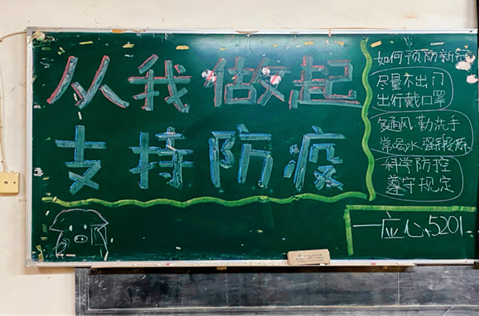 从我做起
支持防疫
如何预防新冠
尽量不出门
出行戴口罩
多通风.勤洗手
常喝水.强锻炼
科学防控
遵守规定
一应心5201